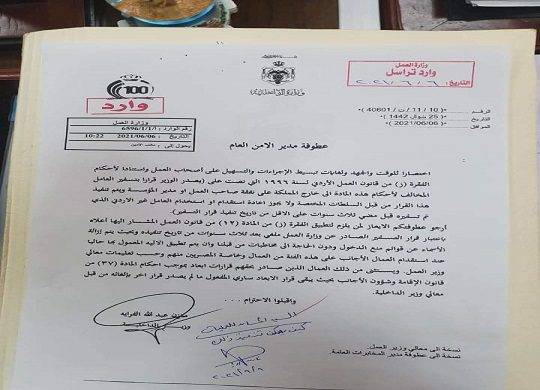 وزارة العمل
وارد تراسل
التاريخ: ٢٠٢١/٦/٦
وزارة الداخلية
100
وارد
الرقم *( 10 / 11 / ت / 40601 )*
التاريخ *( 25 شوال 1442 )*
الموافق *( 2021/06/06 )*
وزارة العمل
رقم الوارد: 6596/1/1/1
2021/06/06 10:22
يحول إلى
عطوفة مدير الامن العام
اختصارا للوقت والجهد ولغايات تبسيط الإجراءات والتسهيل على أصحاب العمل واستنادا لأحكام
الفقرة (ز) من قانون العمل الأردني لسنة ١٩٩٦ التي نصت على (يصدر الوزير قرارا بتسفير العامل
المخالف لأحكام هذه المادة الى خارج المملكة على نفقة صاحب العمل او مدير المؤسسة ويتم تنفيذ
هذا القرار من قبل السلطات المختصة ولا يجوز اعادة استقدام او استخدام العامل غير الاردني الذي
تم تسفيره قبل مضي ثلاث سنوات على الاقل من تاريخ تنفيذ قرار التسفير).
ارجو عطوفتكم الايعاز لمن يلزم لتطبيق الفقرة (ز) من المادة (١٢) من قانون العمل المشار اليها اعلاه
باعتبار قرار التسفير الصادر عن وزارة العمل ملغي بعد ثلاث سنوات من تاريخ تنفيذه وبحيث يتم ازالة
الأسماء عن قوائم منع الدخول ودون الحاجة الى مخاطبات من قبلنا وان يتم تطبيق الالية المعمول بها حاليا
عند استقدام العمال الأجانب على هذه الفئة من العمال وخاصة المصريين منهم وحسب تعليمات معالي
وزير العمل. ويستثنى من ذلك العمال الذين صادر بحقهم قرارات ابعاد بموجب احكام المادة (٣٧) من
قانون الإقامة وشؤون الأجانب بحيث يبقى قرار الابعاد ساري المفعول ما لم يصدر قرار اخر بإلغائه من قبل
معالي وزير الداخلية.
واقبلوا الاحترام ...
مازن عبد الله الفرايه
وزير الداخلية
٢٠٢١/٦/٦
نسخة الى معالي وزير العمل.
نسخة الى عطوفة مدير المخابرات العامة.